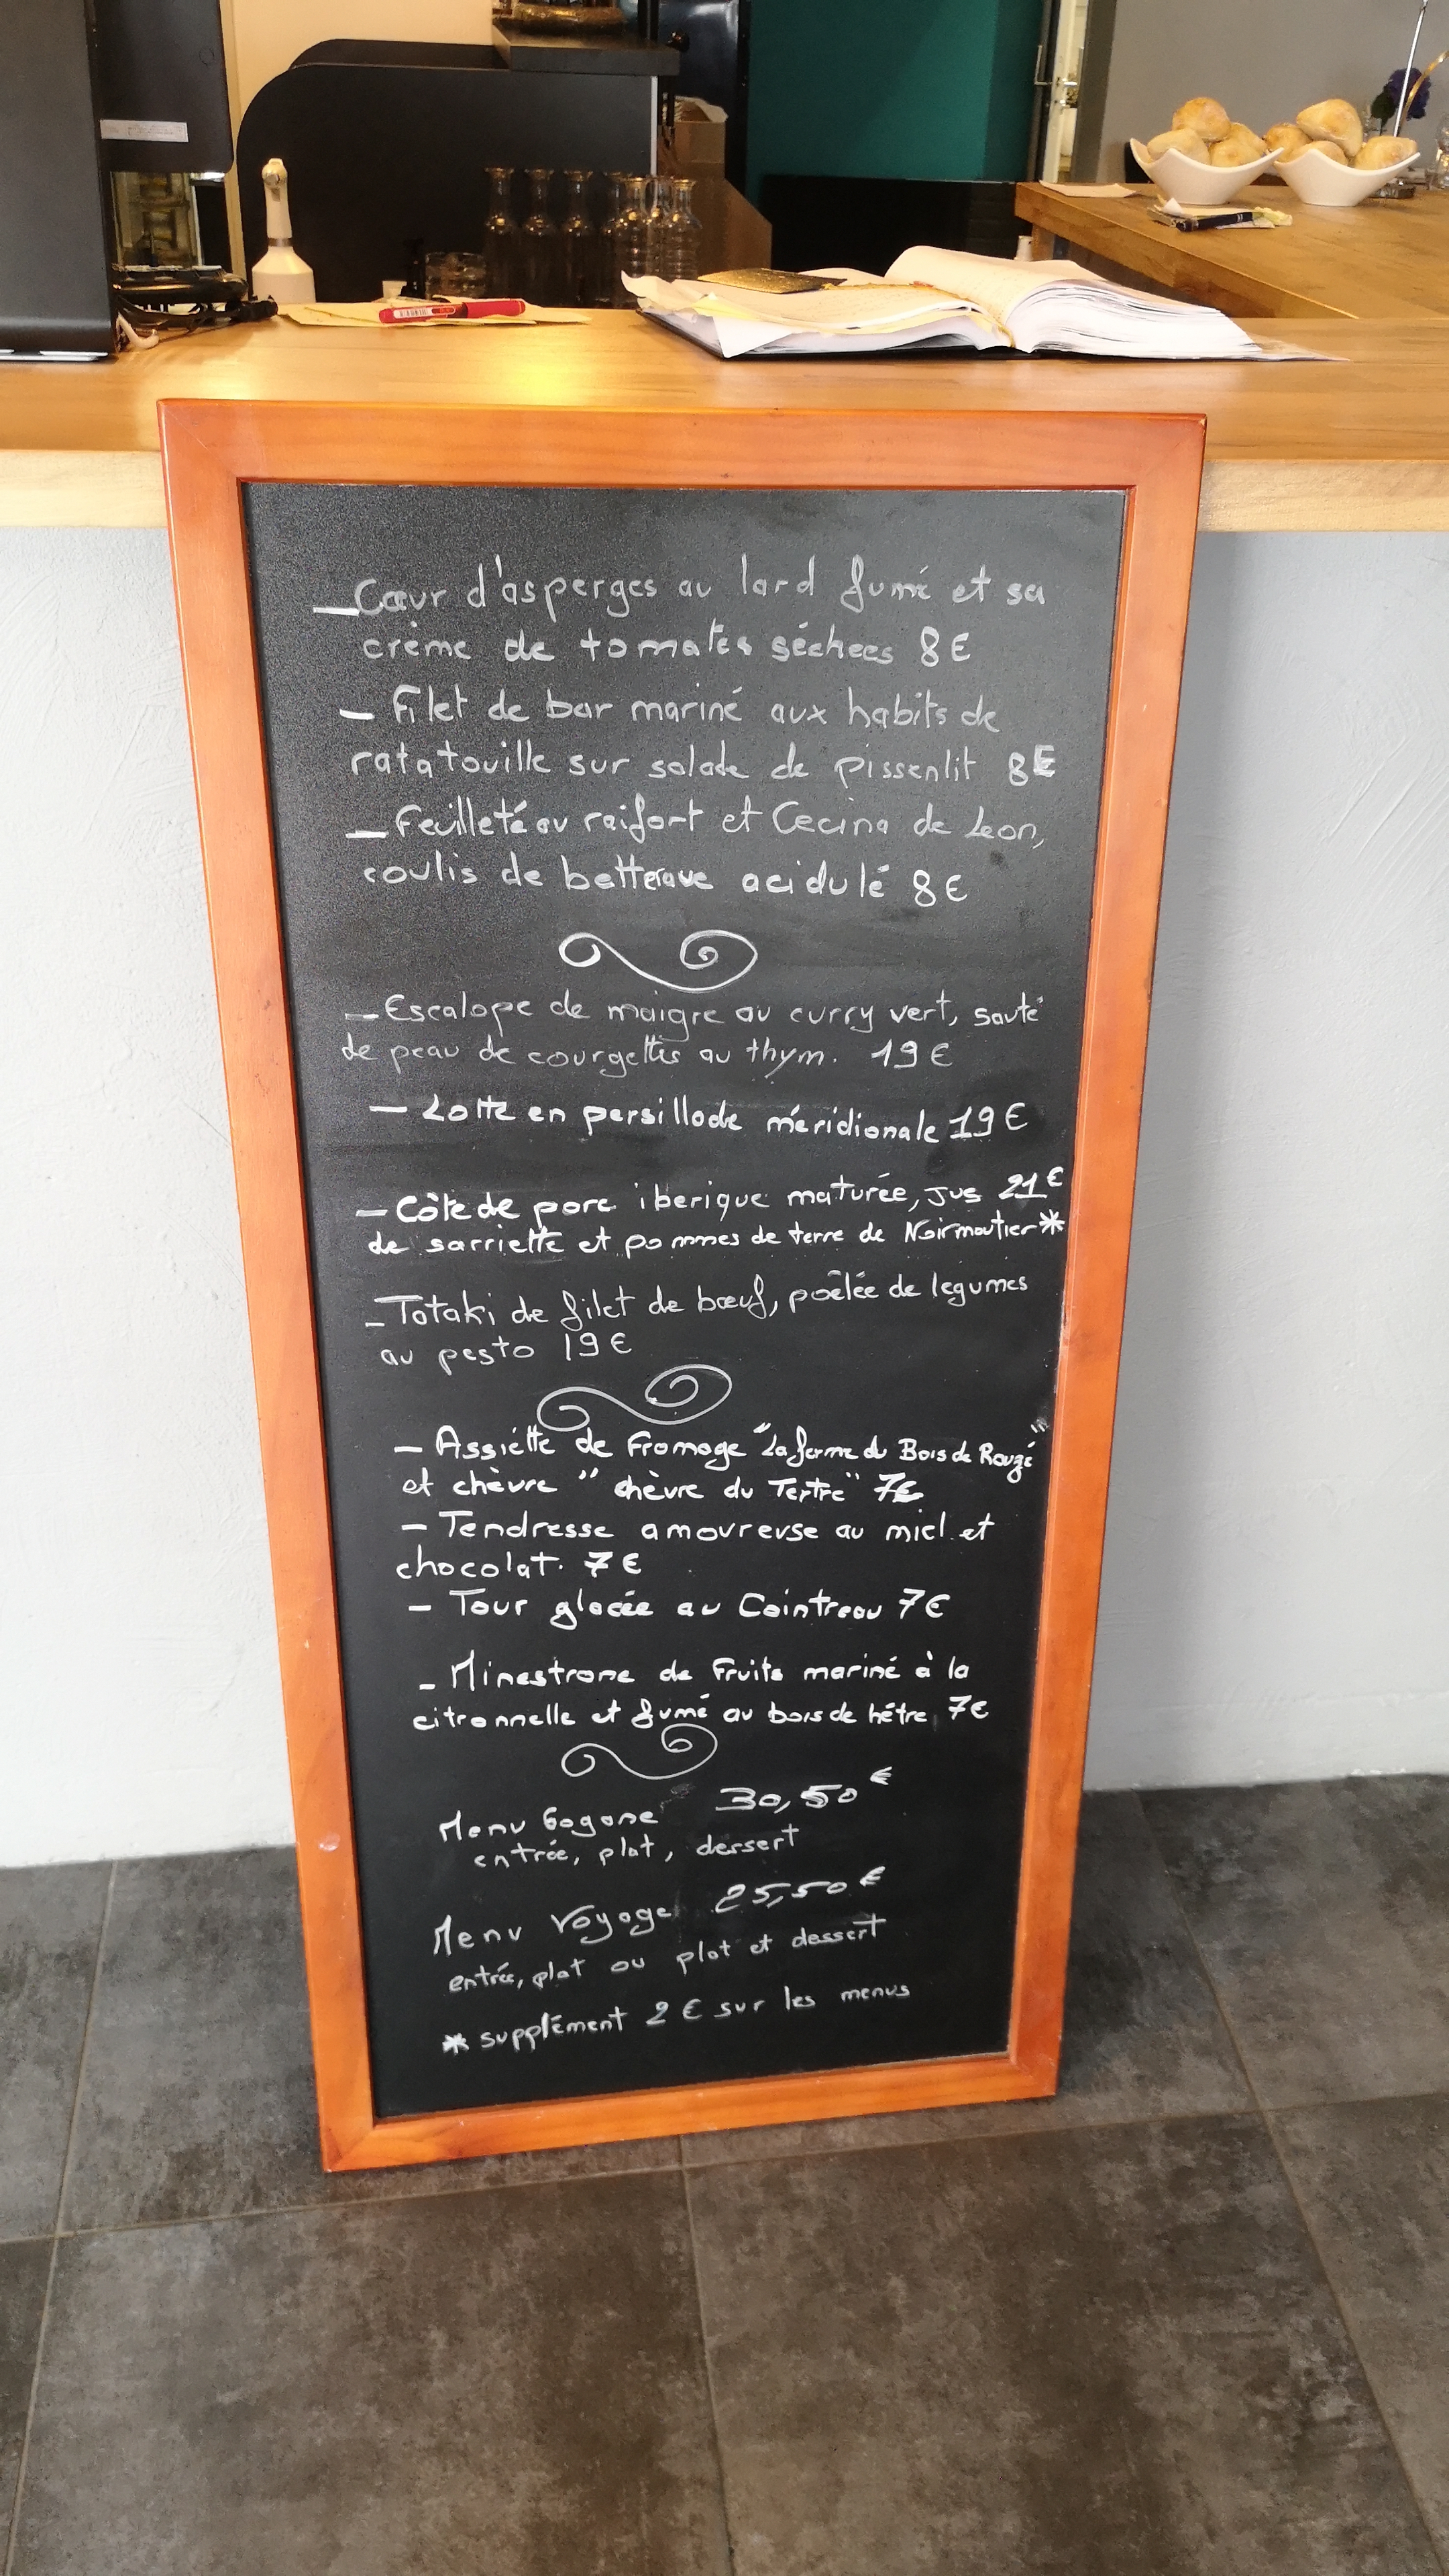 — Cœur d'asperges au lard fumé et sa
crème de tomates séchees 8€
— Filet de bar mariné aux habits de
ratatouille sur salade de pissenlit 8€
— Feuilleté au raifort et Cecina de Leon,
coulis de betterave acidulé 8€
— Escalope de maigre au curry vert, sauté
de peau de courgettes au thym. 19€
— Lotte en persillade méridionale 19€
— Côte de porc iberique maturée, jus 21€
de sarriette et pommes de terre de Noirmoutier*
- Tataki de filet de bœuf, poêlée de legumes
au pesto 19€
— Assiette de Fromage "La ferme du Bois de Rougé"
et chèvre "chèvre du Tertre" 7€
— Tendresse amoureuse au miel et
chocolat. 7€
— Tour glacée au Cointreau 7€
- Minestrone de Fruits mariné à la
citronnelle et fumé au bois de hêtre 7€
Menu Gagane 30,50€
entrée, plat, dessert
Menu Voyage 25,50€
entrée, plat ou plat et dessert
* supplément 2€ sur les menus